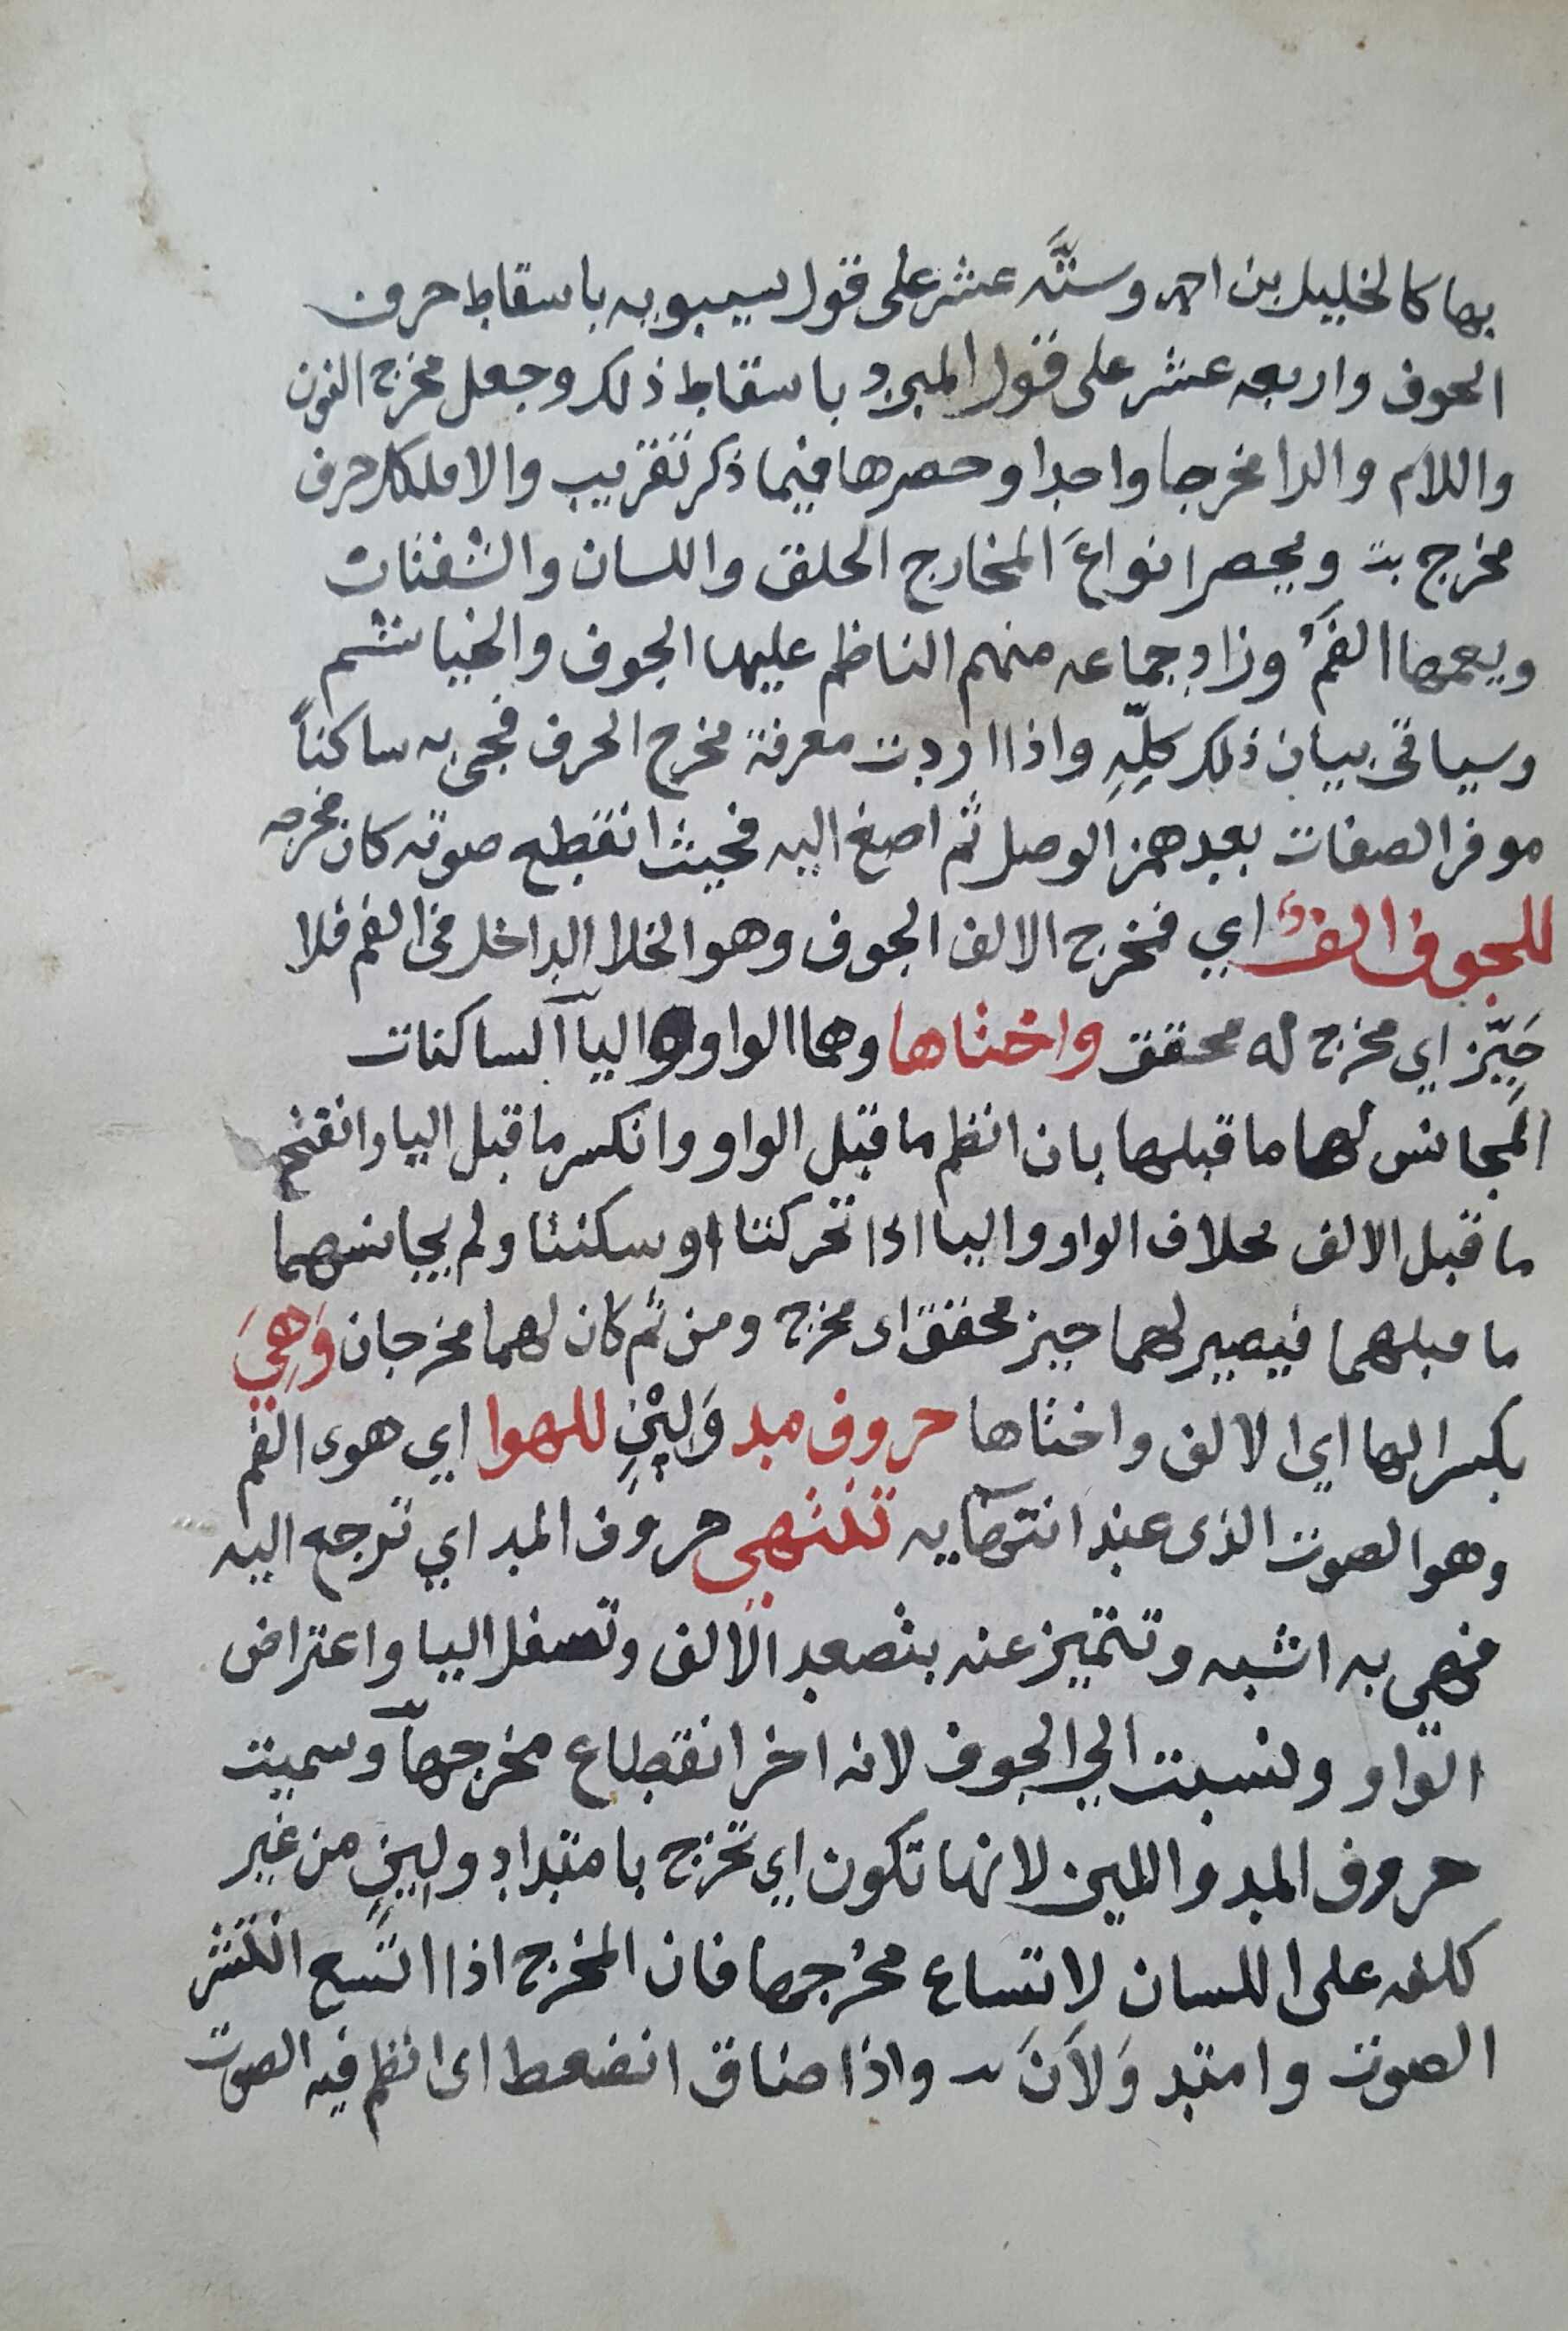 بها كالخليل بن احمد وستَّه عشر على قول سيبويه باسقاط حرف
الجوف واربعه عشر على قول المبرد باسقاط ذلك وجعل مخرج النون
واللام والرا مخرجا واحدا وحصرها فيما ذكر تقريب والا فلكل حرف
مخرج ويحصر انواعَ المخارج الحلق واللسان والشفتان
ويعمها الفمُ وزادِ جماعه منهم الناظم عليها الجوف والخياشم
وسياتى بيان ذلك كلِّهِ واذا اردت معرفة مخرج الحرف فجى به ساكناً
موفر الصفات بعد همز الوصل ثم اصغ اليه فحيث انقطع صوته كان مخرجه
للجوف الفٌ اي فمخرج الالف الجوف وهو الخلا الداخل فى الفم فلا
حَيِّز اي مخرج له محقق واختاها وهما الواو واليآ الساكنات
المجانس لهما ما قبلهما بان انظم ما قبل الواو وانكسر ما قبل اليا وانفتح
ما قبل الالف بخلاف الواو واليا اذا تحركتا او سكنتا ولم يجانسهما
ما قبلهما فيصير لهما حيز محقق اى مخرج ومن ثم كان لهما مخرجان وَهِيَ
بكسر الها اي الالف واختاها حروف مد وَلِيْنٍ للهوا اي هوى الفم
وهو الصوت الذى عند انتهآيه تنتهي حروف المد اي ترجع اليه
فهي به اشبه وتتميز عنه بتصعد الالف وتسفل اليا واعتراض
الواو ونسبت الي الجوف لانه اخر انقطاع مخرجها وسميت
حروف المد واللين لانها تكون اي تخرج بامتدادٍ ولِينٍ من غير
كلفه على اللسان لاتساع مخرجها فان المخرج اذا اتَّسع انتشر
الصوت وامتد وَلاَنَ واذا ضاق انضغط اى انظم فيه الصوت